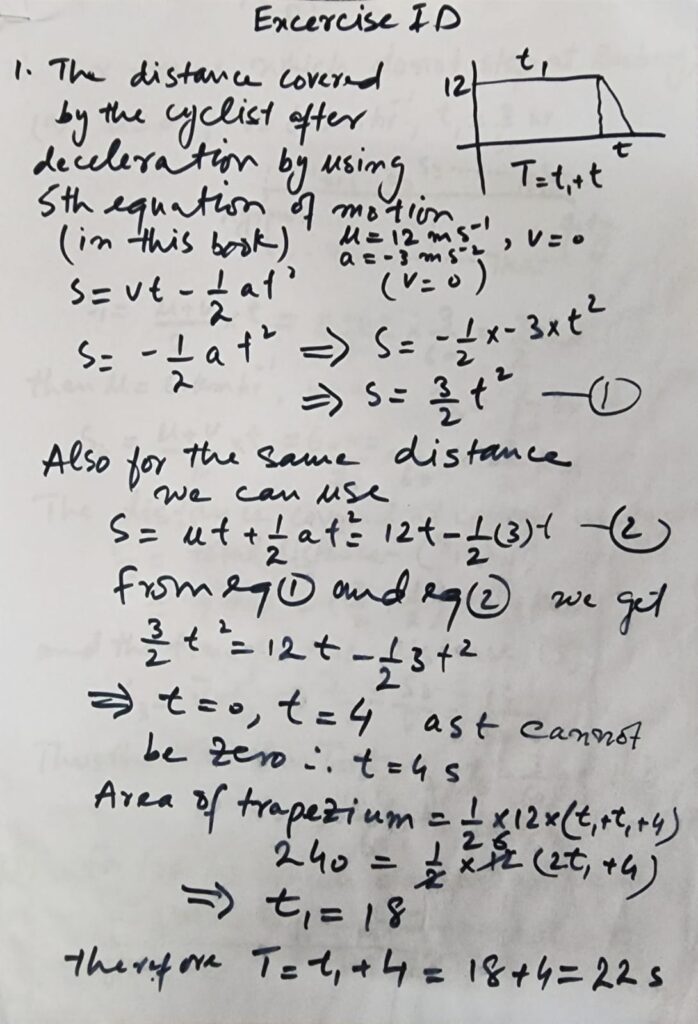 Excercise 1D
1. The distance covered
by the cyclist after
deceleration by using
5th equation of motion
(in this book) u = 12 ms⁻¹, v = 0
a = -3 ms⁻²
(v = 0)
12 t₁
t
T = t₁ + t
S = vt - 1/2 at²
S = - 1/2 at² ⇒ S = - 1/2 x - 3 x t²
⇒ S = 3/2 t² —①
Also for the same distance
we can use
S = ut + 1/2 at² = 12t - 1/2 (3)t —②
from eq ① and eq ② we get
3/2 t² = 12t - 1/2 3t²
⇒ t = 0, t = 4 as t cannot
be zero ∴ t = 4 s
Area of trapezium = 1/2 x 12 x (t₁ + t₁ + 4)
240 = 1/2 x 12 6 (2t₁ + 4)
⇒ t₁ = 18
therefore T = t₁ + 4 = 18 + 4 = 22 s